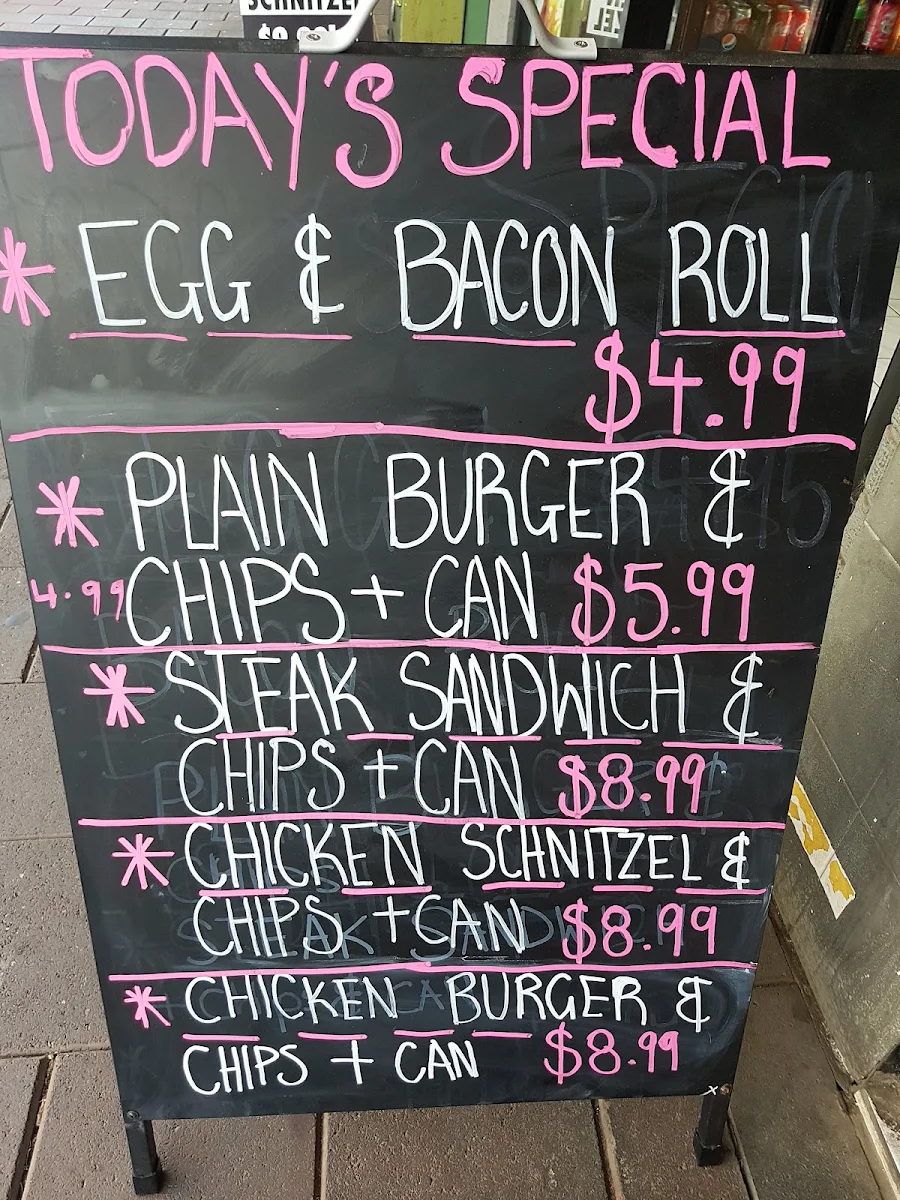 SCHNITZEL
TODAY'S SPECIAL
* EGG & BACON ROLL
$4.99
* PLAIN BURGER &
4.99 CHIPS + CAN $5.99
* STEAK SANDWICH &
CHIPS + CAN $8.99
* CHICKEN SCHNITZEL &
CHIPS + CAN $8.99
* CHICKEN BURGER &
CHIPS + CAN $8.99
x